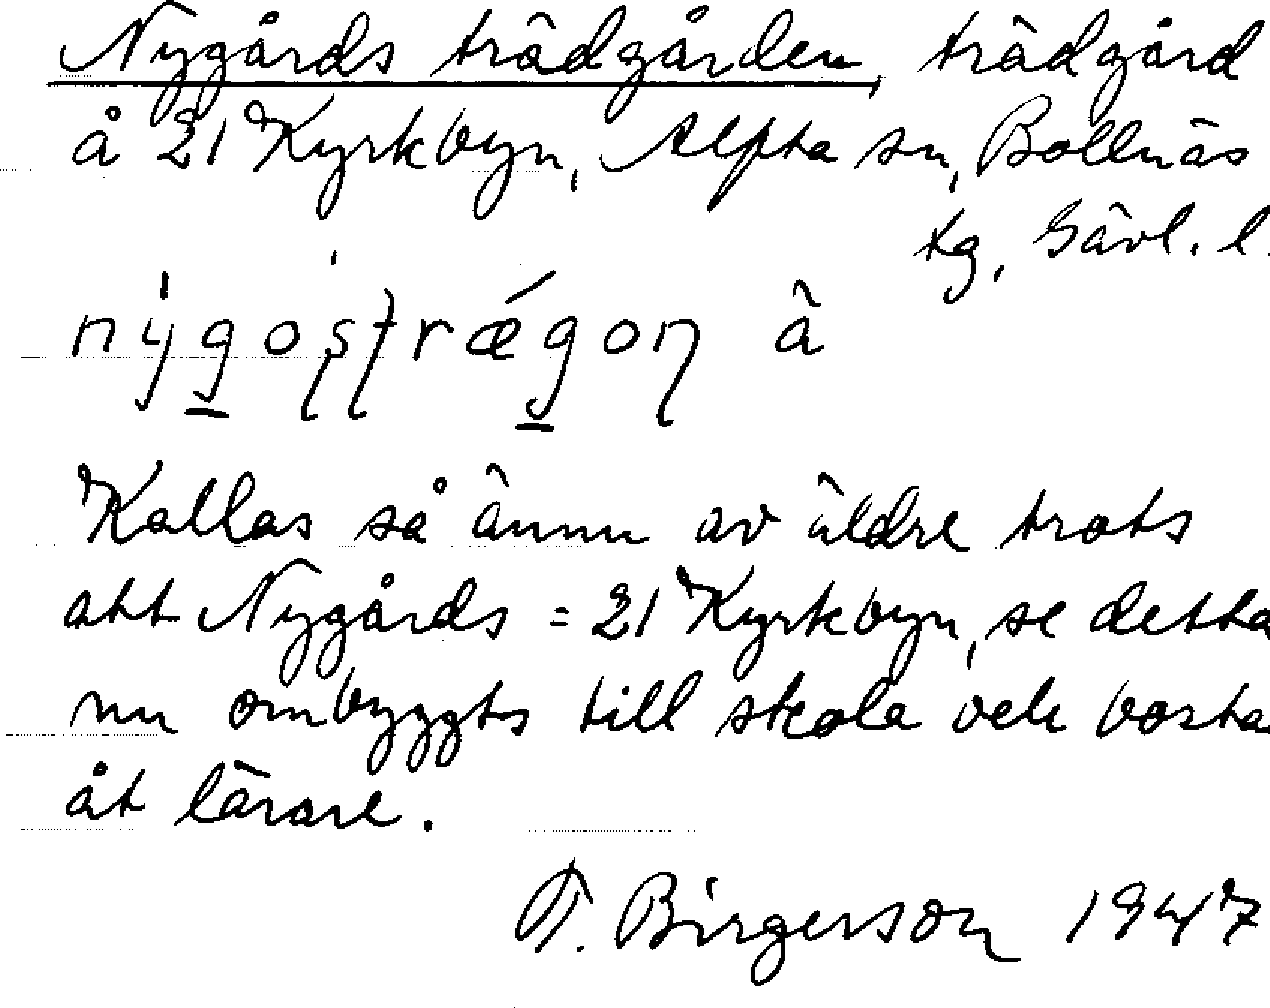 Nygårds trädgården, trädgård
å 21 Kyrkbyn, Alfta sn, Bollnäs
tg, Gävl. l.
nýgoştrǽgoŋ â
Kallas så ännu av äldre trots
att Nygårds = 21 Kyrkbyn, se detta
nu ombyggts till skola och bosta
åt lärare.
T. Birgerson 1947